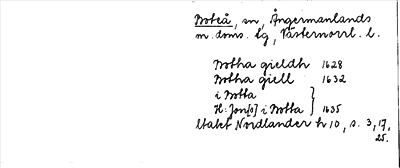 Boteå, sn, Ångermanlands
m. doms. lg, Västernorrl. l.
Botha gieldh 1628
Botha giell 1632
i Botta
H: Jon[s] i Botta } 1635
ltakt Nordlander h 10, s. 3, 17,
25.